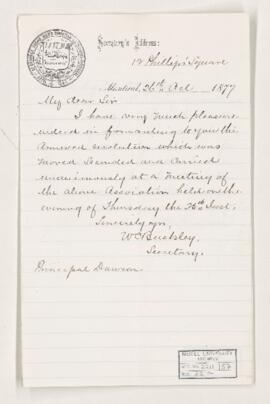 Secretary's Address:
12 Phillips Square
Montreal, 26th Oct 1877
My dear Sir
I have very much pleasure
indeed in forwarding to you the
annexed resolution which was
moved seconded and carried
unanimously at a meeting of
the above Association held on the
evening of Thursday the 25th Inst.
Sincerely yrs,
Secretary.
Principal Dawson
McGILL UNIVERSITY
ARCHIVES